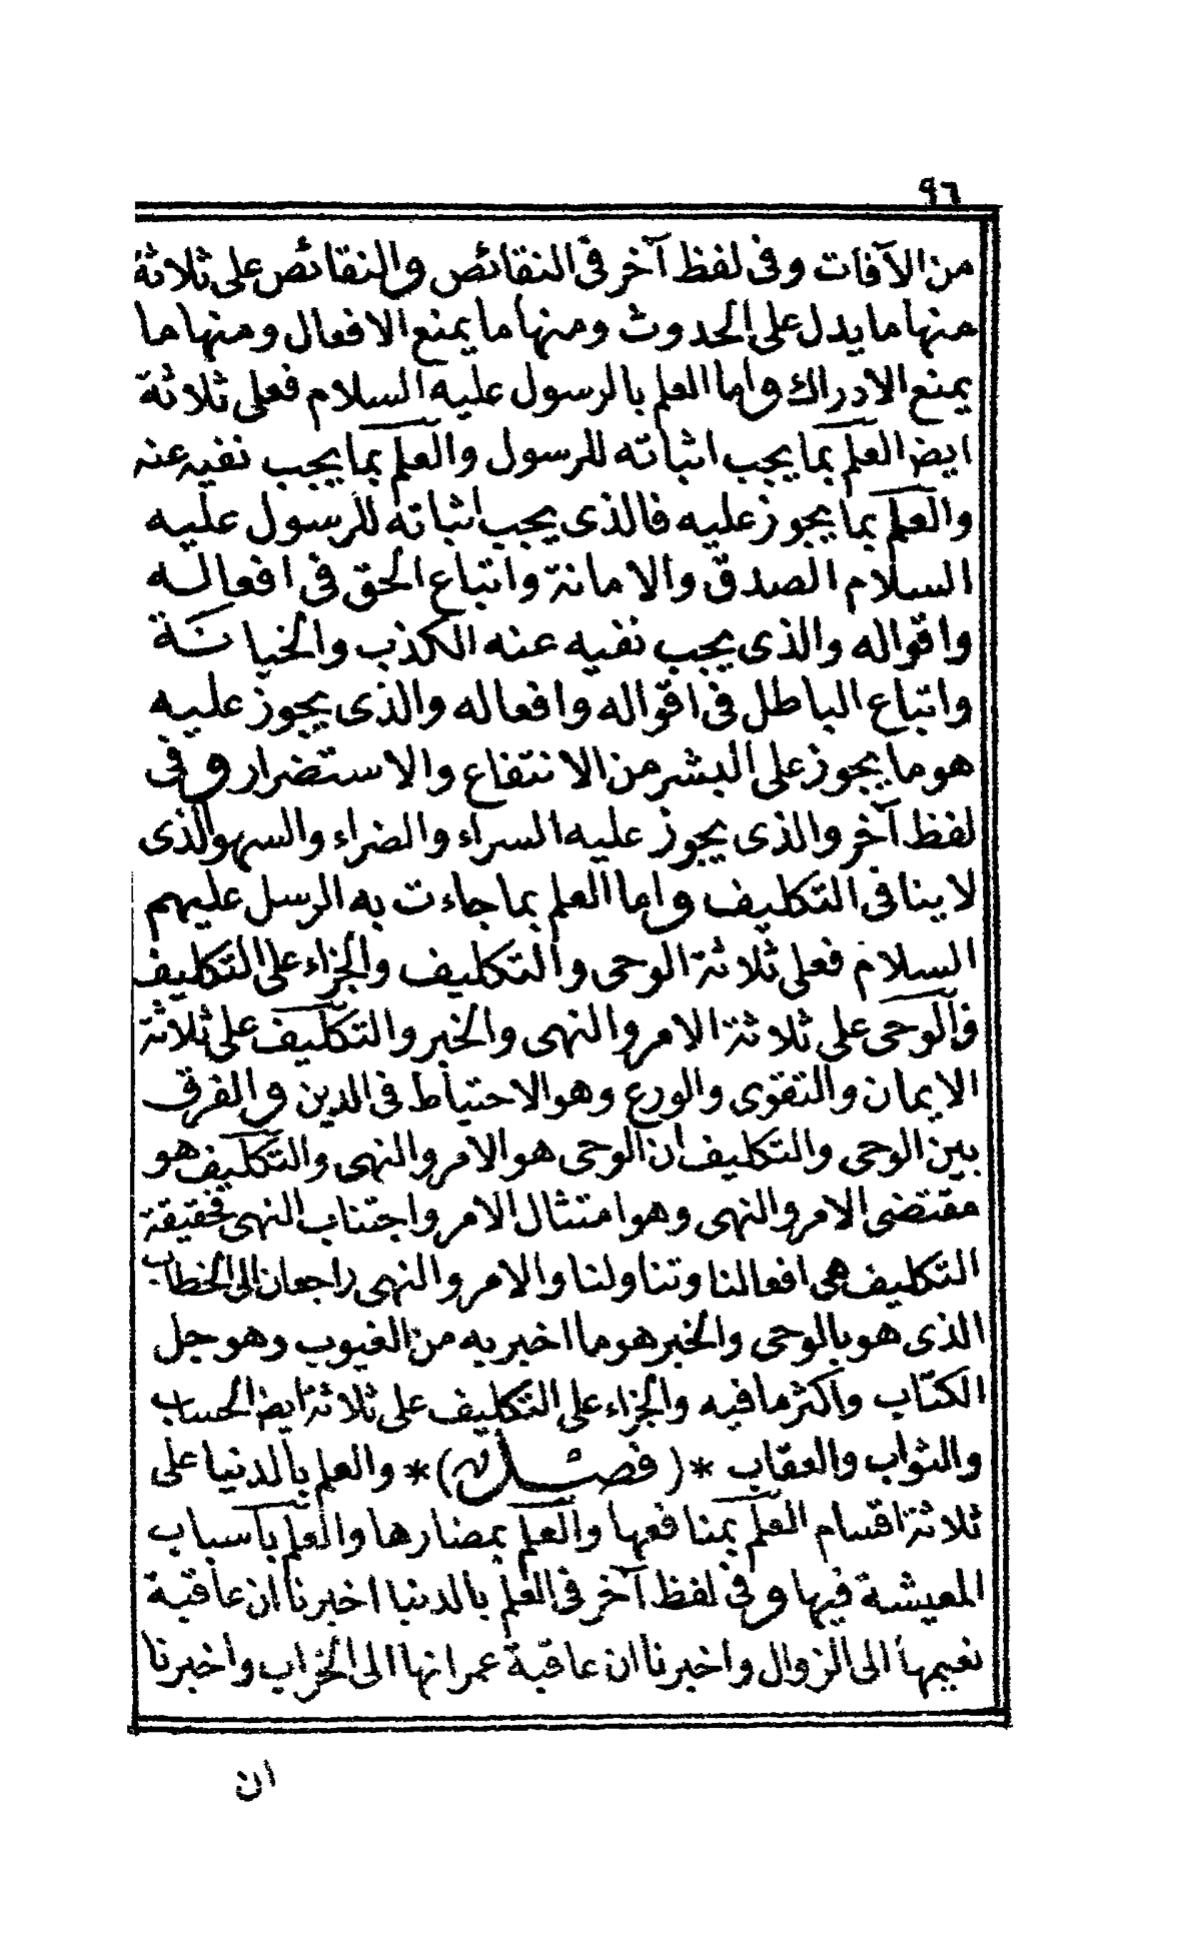 ٩٦
من الآفات وفى لفظ آخر فى النقائص والنقائص على ثلاثة
منها ما يدل على الحدوث ومنها ما يمنع الافعال ومنها ما
يمنع الادراك واما العلم بالرسول عليه السلام فعلى ثلاثة
ايضا العلم بما يجب اثباته للرسول والعلم بما يجب نفيه عنه
والعلم بما يجوز عليه فالذى يجب اثباته للرسول عليه
السلام الصدق والامانة واتباع الحق فى افعاله
واقواله والذى يجب نفيه عنه الكذب والخيانة
واتباع الباطل فى اقواله وافعاله والذى يجوز عليه
هو ما يجوز على البشر من الانتفاع والاستضرار وفى
لفظ آخر والذى يجوز عليه السراء والضراء والسهو الذى
لا ينافى التكليف واما العلم بما جاءت به الرسل عليهم
السلام فعلى ثلاثة الوحى والتكليف والجزاء على التكليف
فالوحى على ثلاثة الامر والنهى والخبر والتكليف على ثلاثة
الايمان والتقوى والورع وهو الاحتياط فى الدين والفرق
بين الوحى والتكليف ان الوحى هو الامر والنهى والتكليف هو
مقتضى الامر والنهى وهو امتثال الامر واجتناب النهى فحقيقة
التكليف هى افعالنا وتناولنا والامر والنهى راجعان الى الخطاب
الذى هو بالوحى والخبر هو ما اخبر به من الغيوب وهو جل
الكتاب واكثر ما فيه والجزاء على التكليف على ثلاثة ايضا الحساب
والثواب والعقاب *(فصل)* والعلم بالدنيا على
ثلاثة اقسام العلم بمنافعها والعلم بمضارها والعلم باسباب
المعيشة فيها وفى لفظ آخر فى العلم بالدنيا اخبرنا ان عاقبة
نعيمها الى الزوال واخبرنا ان عاقبة عمرانها الى الخراب واخبرنا
ان